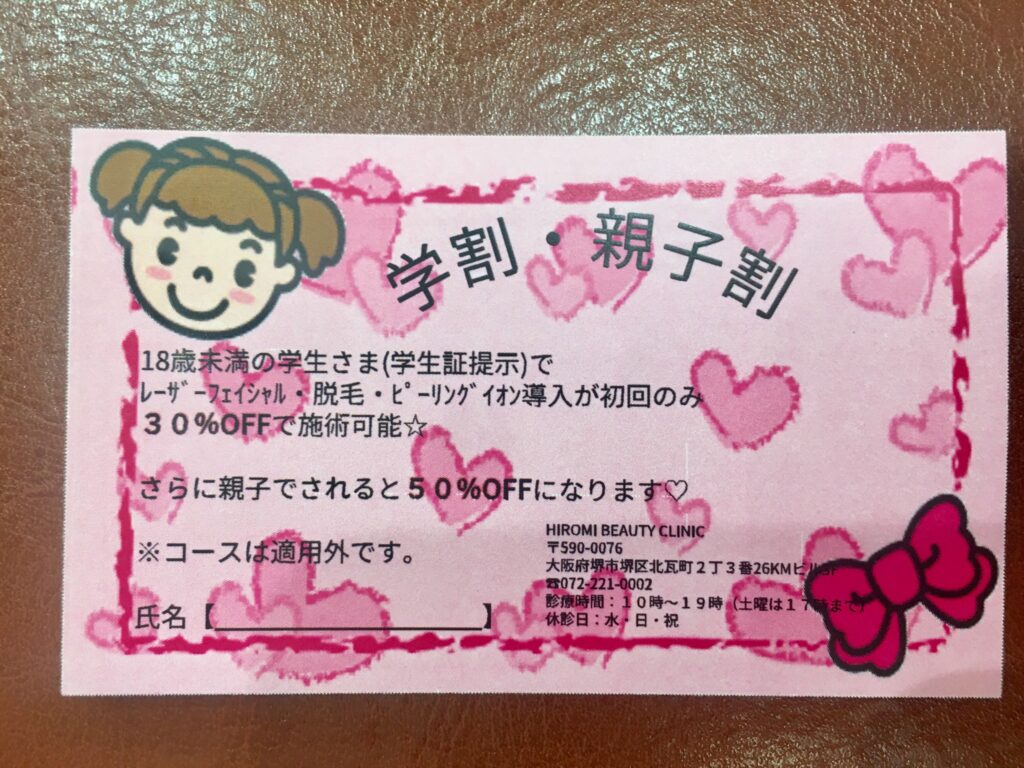 学割・親子割
18歳未満の学生さま(学生証提示)で
ﾚｰｻﾞｰﾌｪｲｼｬﾙ・脱毛・ﾋﾟｰﾘﾝｸﾞｲｵﾝ導入が初回のみ
３０%OFFで施術可能☆
さらに親子でされると５０%OFFになります♡
※コースは適用外です。
氏名【＿＿＿＿＿＿＿＿＿＿】
HIROMI BEAUTY CLINIC
〒590-0076
大阪府堺市堺区北瓦町２丁３番26KMビル3F
☎072-221-0002
診療時間：１０時～１９時（土曜は１７時まで）
休診日：水・日・祝